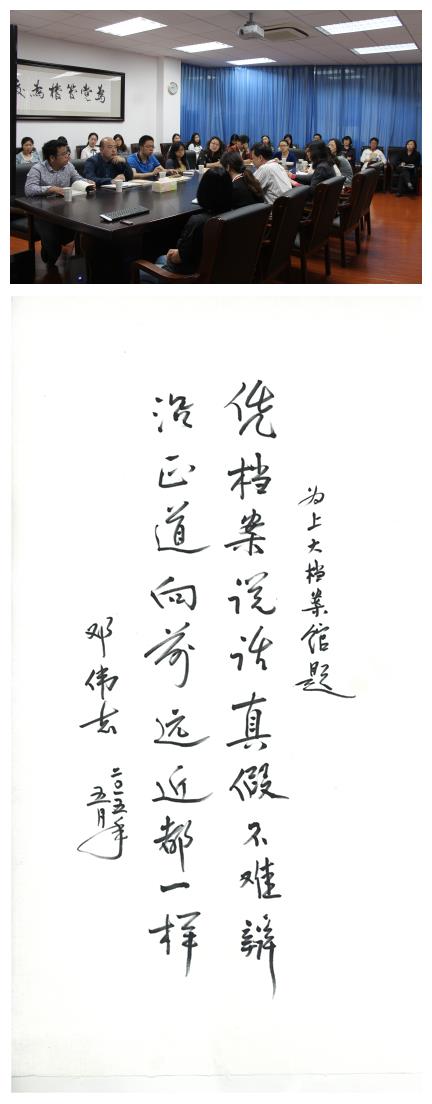 为党管档为
为上大档案馆题
凭档案说话真假不难辨
沿正道向前远近都一样
邓伟志
二〇一五年
五月